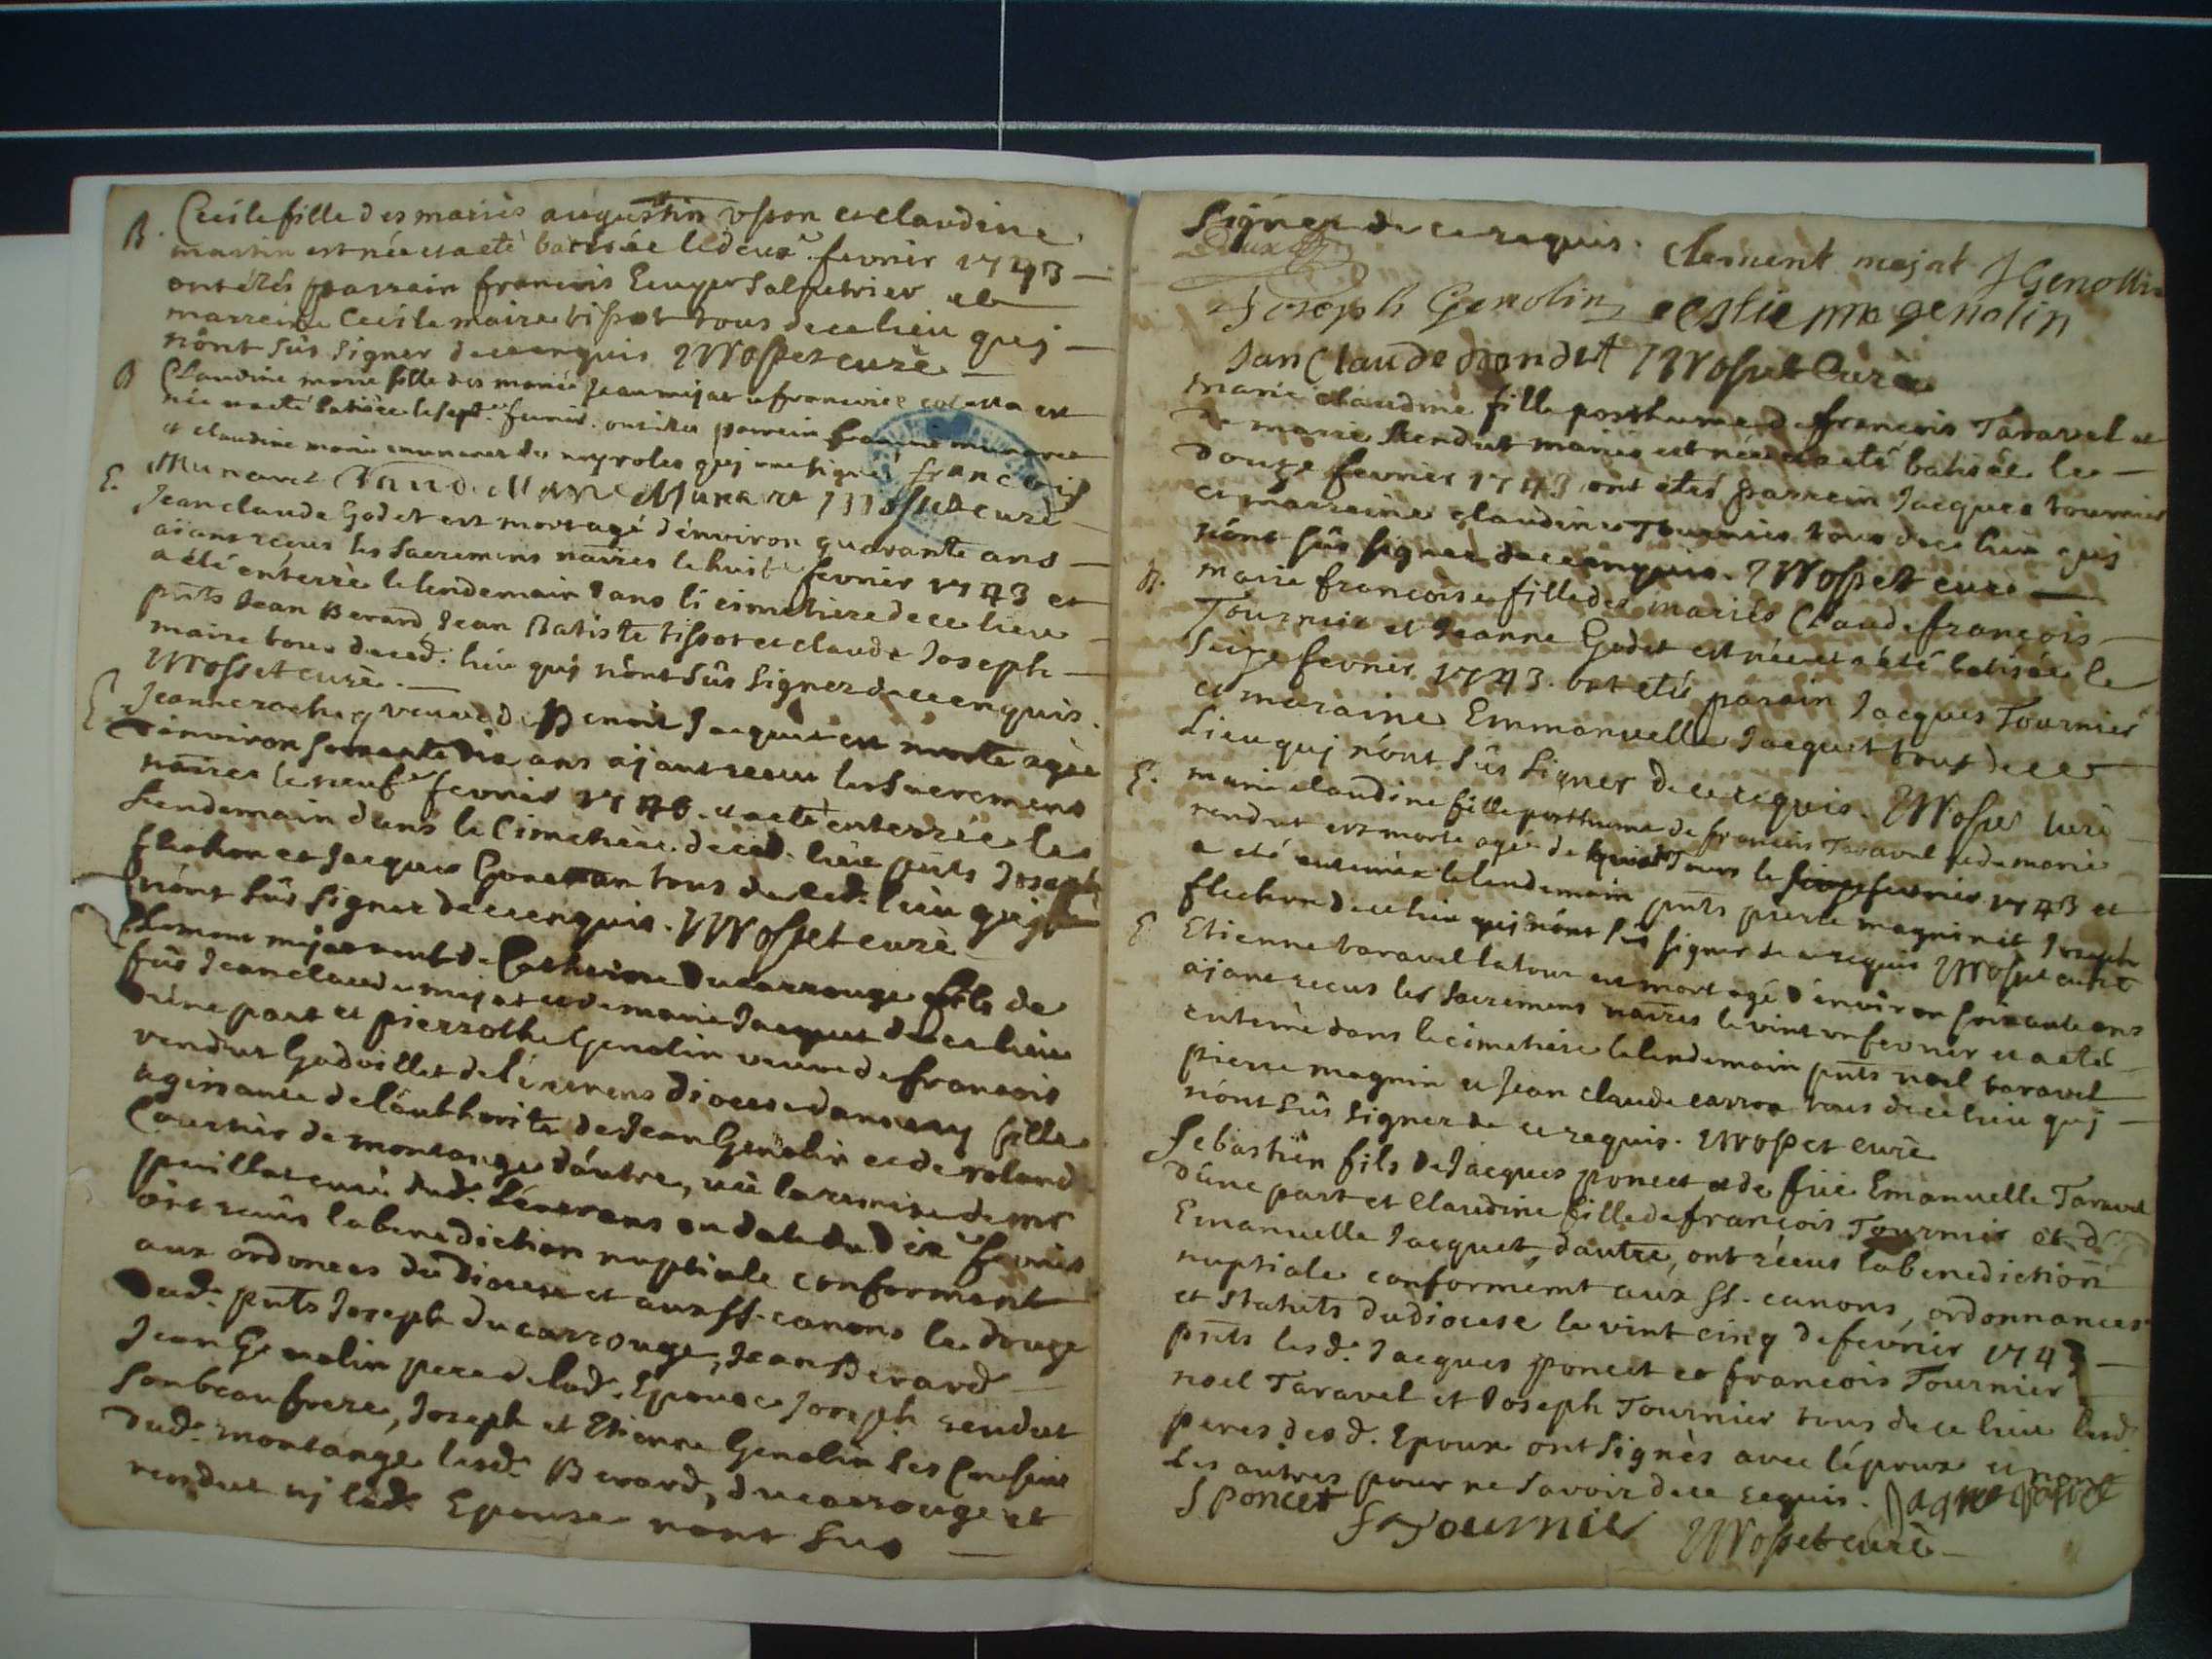 B. Cecile fille des mariès augustin vspon et claudine
martin est née et a eté batisée le deux.e fevrier 1743
ont étés parrein francois Salpetrier et
marreine Cecile maire tissot tous de ce lieu quj
nônt sûs signer de ce enquis JJMosset curè
B Claudine marie fille des mariés Jean mijat et francoise est
née et a eté batisée le sept.e fevrier. ont étés parrein françois munaret
et claudine marie munaret des neyroles quj ont signes francois
Munaret Claudine Marie Munaret JJMosset curè
E. Jean claude Godet est mort agé dénviron quarante ans
aiant reçeus les Sacremens naires le huit.e fevrier 1743 et
a été énterrè le lendemain dans le cimetiere de ce lieu
pnts Jean Berard, Jean Batiste tissot et claude Joseph
maire tous de ced. lieu quj nônt sûs signer de ce enquis.
JJMosset curè.
E Jeanne veuve de Benoit Jacquet est morte agèe
dénviron soixante dix ans ajant reçeu les Sacremens
naires le neuf.e fevrier 1743. et a eté enterrée le
lendemain dans le Cimetière de ced. lieu pnts Joseph
flechon et Jacques tous de ced. lieu quj
nônt sûs signer de ce enquis. JJMosset curè
Clement mijat veuf de Catherine Ducarrouge fils de
fûs Jean claude mijat et de marie Jacquet de ce lieu
dúne part et pierrothe Genolin veuve de francois
rendut Godvillet de léznens diocese dannecy fille
agissante de láuthorite de Jean Genolin et de roland
Courtois de montange dáutre, vû la remise de mr
curé dud. Léserens en date du dix.e fevrier
ont reçûs la benediction nuptiale conformemt
aux ordonces du diocese et aux SS. canons le douze
dud. pnts Joseph ducarrouge, Jean Berard
Jean Genolin pere de lad. Epouse Joseph rendut
son beau frere, Joseph et Etienne Genolin ses Cousins
dud. montange lesd. Berard, ducarrouge et
rendut nj lad. Epouse nont sus
signer de ce requis. Clement mejat J Genollin
Joseph Genolin Genolin
Jan Claude JJMosset Curè
Marie claudine fille posthume de françois Taravel et
de marie Rendut mariés est née et a eté batisée le
douze fevrier 1743 ont étés parrein Jacques tournier
et marreine claudine Tournier tous de ce lieu quj
nônt sûs signer de ce enquis. JJMosset curè
B. Marie françoise fille des mariés Claude françois
Tournier et Jeanne Godet est née et a été batisée le
Seize fevrier 1743. ont étés parain Jacques Tournier
et maraine Emmanuelle Jacquet tous de ce
Lieu quj nónt sûs signer de ce requis. JJMosset curè
E. marie claudine fille posthume de francois Taravel et de marie
rendut est morte agée de jours le fevrier 1743 et
a eté enterrée le lendemain pnts pierre magnin et Joseph
flechon de ce lieu quj nónt sûs signer de ce requis JJMosset curè
E Etienne taravel latour est mort agé dénviron soixante ans
ajant reçus les Sacremens naires le vint un fevrier et a eté
enterrè dans le cimetiere le lendemain pnts noel taravel
pierre magnin et Jean claude carron tous de ce lieu quj
nónt sûs signer de ce requis. JJMosset curè
Sebastien fils de Jacques poncet et de füe Emanuelle Taravel
dúne part et Claudine fille de françois Tournier et d
Emanuelle Jacquet, dautre, ont réçus la benediction
nuptiale conformemt aux SS. canons, ordonnances
et Statuts du diocese le vint cinq de fevrier 1743
pnts lesd. Jacques poncet et francois Tournier
noel Taravel et Joseph Tournier tous de ce lieu lesd.
peres desd. Epoux ont signès avec lépoux et non
les autres pour ne savoir de ce requis. Jaque poncet
S poncet f Tournier JJMosset curè